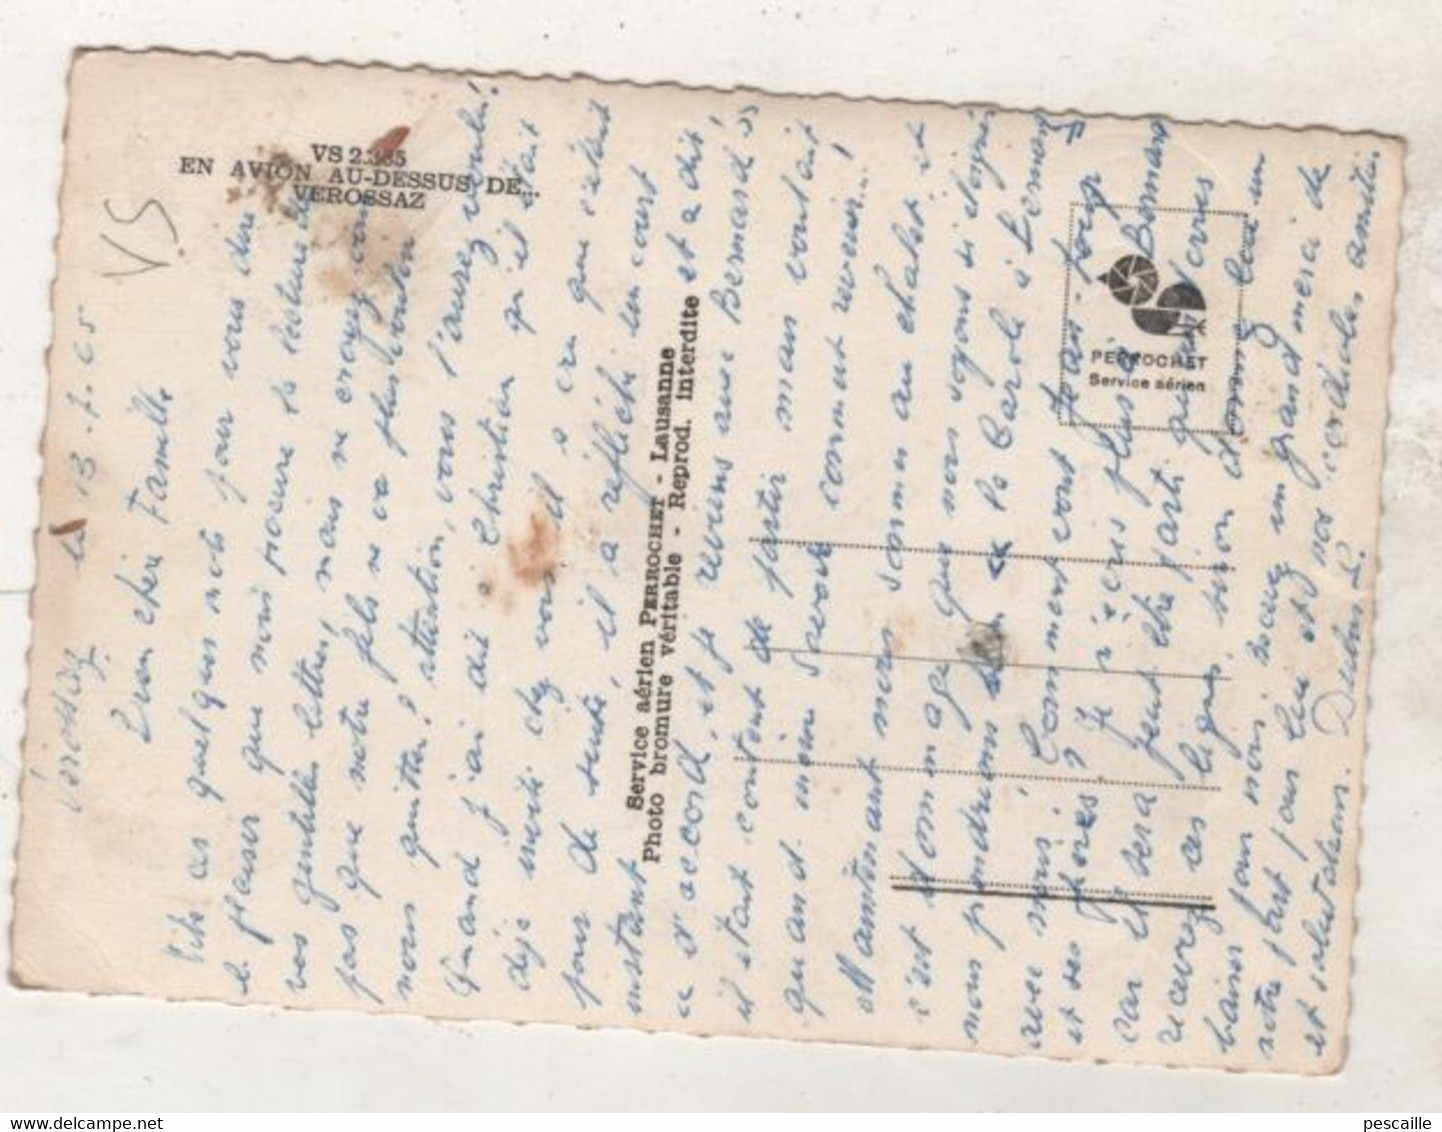 VS 2.335
EN AVION AU-DESSUS DE...
VEROSSAZ
VS
Vérossaz le 13.7.65
Bien chère Famille
Vite ces quelques mots pour vous dire
le plaisir que nous procure la lecture de
vos gentilles lettres, mais ne croyez-vous
pas que notre fils ne va plus vouloir
nous quitter? attention, vous l'aurez voulu!
Quand j'ai dit à Christian qu'il était
déjà invité chez vous il a cru que c'était
pour de suite, il a réfléchi un court
instant et a dit,
d'accord, et je reviens avec Bernard
il était content de partir mais voulait
quand même savoir comment revenir!
Maintenant nous sommes au chalet et
c'est dommage que nous soyons si éloignés
nous prendrions bien la Carole à Bernard
avec nous! Comment vont Jean-Loup
et ses frères? Je n'écris plus à Bernard
car il sera peut être parti quand vous
recevrez ces lignes, sinon donnez lui un
baiser pour nous
notre part pour lui et un grand merci de
et salutations. nos cordiales amitiés
Service aérien PERROCHET - Lausanne
Photo bromure véritable - Reprod. interdite
PERROCHET
Service aérien
pescaille